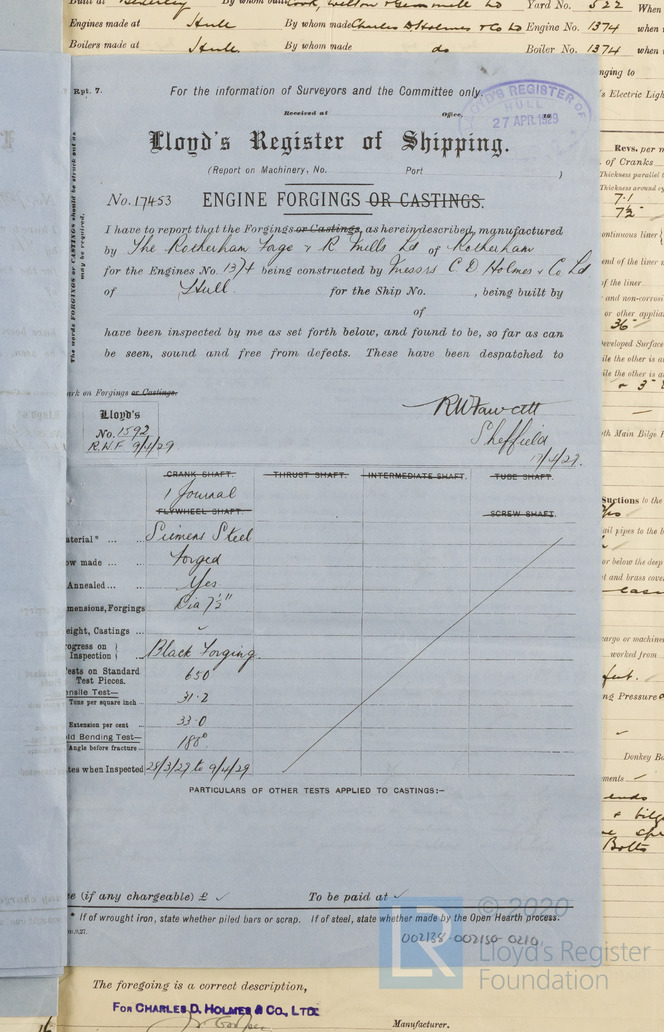 Built at Beverley By whom built Cook, Welton & Gemmell Ld Yard No. 522 When
Engines made at Hull By whom made Charles D Holmes & Co Ld Engine No. 1374 when
Boilers made at Hull By whom made do Boiler No. 1374 when
nging to
's Electric Ligh
Rpt. 7.
For the information of Surveyors and the Committee only.
Received at Office, 19
LLOYD'S REGISTER OF
HULL
27 APR 1929
Lloyd's Register of Shipping.
(Report on Machinery, No. Port )
The words FORGINGS or CASTINGS should be struck out as
may be required.
No. 17453 ENGINE FORGINGS OR CASTINGS.
I have to report that the Forgings or Castings, as herein described, manufactured
by The Rotherham Forge & R Mills Ld of Rotherham
for the Engines No. 1374 being constructed by Messrs C. D Holmes & Co Ld
of Hull for the Ship No. , being built by
of
have been inspected by me as set forth below, and found to be, so far as can
be seen, sound and free from defects. These have been despatched to
ark on Forgings or Castings.
Lloyd's
No. 1592
R.W.F. 9/4/29
RWFawcett
Sheffield
CRANK SHAFT. THRUST SHAFT. INTERMEDIATE SHAFT. TUBE SHAFT.
1 Journal
FLYWHEEL SHAFT. SCREW SHAFT.
aterial* ... ... Siemens Steel
ow made ... Forged
Annealed ... ... Yes
mensions, Forgings Dia 7½"
eight, Castings ... ✓
rogress on Inspection } ... Black Forging.
ests on Standard Test Pieces. 650
ensile Test—
Tons per square inch ... 31.2
Extension per cent 33.0
ld Bending Test—
Angle before fracture... 180°
tes when Inspected 28/3/29 to 9/4/29
PARTICULARS OF OTHER TESTS APPLIED TO CASTINGS:–
e (if any chargeable) £ ✓ To be paid at ✓
* If of wrought iron, state whether piled bars or scrap. If of steel, state whether made by the Open Hearth process.
002138-002150-0210
© 2020
LR
Lloyd's Register
Foundation
Revs. per m
of Cranks
Thickness parallel t
Thickness around ey
7.1
7½
ontinuous liner
end of the liner
of the liner
and non-corrosi
or other applian
36
Developed Surface
ile the other is a
ile the other is a
th Main Bilge
Suctions to the
ail pipes to the b
or below the deep
t and brass cove
cargo or machine
worked from
ng Pressure
Donkey Bo
ments
ends
Bolts
The foregoing is a correct description,
FOR CHARLES D. HOLMES & CO., LTD.
Manufacturer.